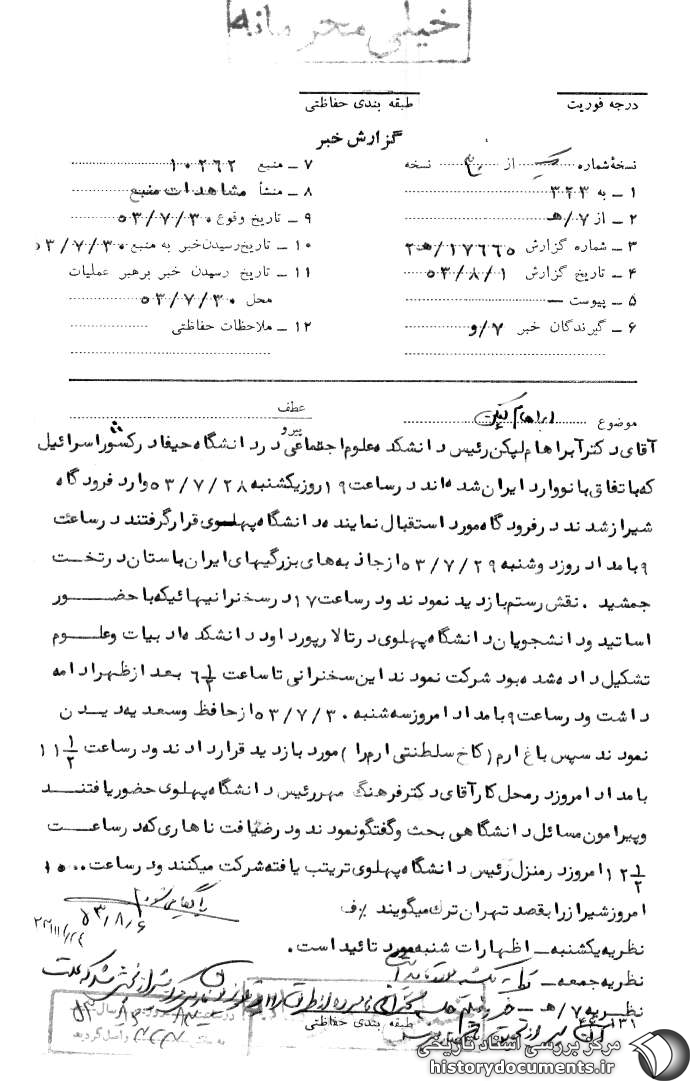 خیلی محرمانه
درجه فوریت
طبقه بندی حفاظتی
گزارش خبر
نسخهٔ شماره از نسخه
۱ ـ به ۳۲۳
۲ ـ از ۷/هـ
۳ ـ شماره گزارش ۱۷۶۶۵/هـ۲
۴ ـ تاریخ گزارش ۵۳/۸/۱
۵ ـ پیوست —
۶ ـ گیرندگان خبر ۷/و
۷ ـ منبع ۱۰۲۶۲
۸ ـ منشأ مشاهدات منبع
۹ ـ تاریخ وقوع ۵۳/۷/۳۰
۱۰ ـ تاریخ رسیدن خبر به منبع ۵۳/۷/۳۰
۱۱ ـ تاریخ رسیدن خبر برهبر عملیات
محل ۵۳/۷/۳۰
۱۲ ـ ملاحظات حفاظتی
موضوع ابراهام لپکن
عطف
پیرو
آقای دکتر آبراهام لپکن رئیس دانشکده علوم اجتماعی در دانشگاه حیفا در کشور اسرائیل
که باتفاق بانو وارد ایران شده اند در ساعت ۱۹ روز یکشنبه ۵۳/۷/۲۸ وارد فرودگاه
شیراز شدند در فرودگاه مورد استقبال نماینده دانشگاه پهلوی قرار گرفتند در ساعت
۹ بامداد روز دوشنبه ۵۳/۷/۲۹ از جاذبه های بزرگیهای ایران باستان در تخت
جمشید . نقش رستم بازدید نمودند و در ساعت ۱۷ در سخنرانیهائیکه با حضور
اساتید و دانشجویان دانشگاه پهلوی در تالار پورداود دانشکده ادبیات و علوم
تشکیل داده شده بود شرکت نمودند این سخنرانی تا ساعت ۶ ۱/۲ بعد از ظهر ادامه
داشت و در ساعت ۹ بامداد امروز سه شنبه ۵۳/۷/۳۰ از حافظ و سعدیه دیدن
نمودند سپس باغ ارم (کاخ سلطنتی ارم را) مورد بازدید قرار دادند و در ساعت ۱۱ ۱/۲
بامداد امروز در محل کار آقای دکتر فرهنگ مهر رئیس دانشگاه پهلوی حضور یافتند
و پیرامون مسائل دانشگاهی بحث و گفتگو نمودند و در ضیافت ناهاری که در ساعت
۱۲ ۱/۲ امروز در منزل رئیس دانشگاه پهلوی تریتب یافته شرکت میکنند و در ساعت ۱۵۰۰
امروز شیراز را بقصد تهران ترک میگویند ٪ف
بایگانی شود
۵۳/۸/۶
نظریه یکشنبه ـ اظهارات شنبه مورد تائید است .
نظریه جمعه ـ نظریه یکشنبه مورد تائید است
نظریه ۷/هـ ـ
طبقه بندی حفاظتی
مرکز بررسی اسناد تاریخی
historydocuments.ir